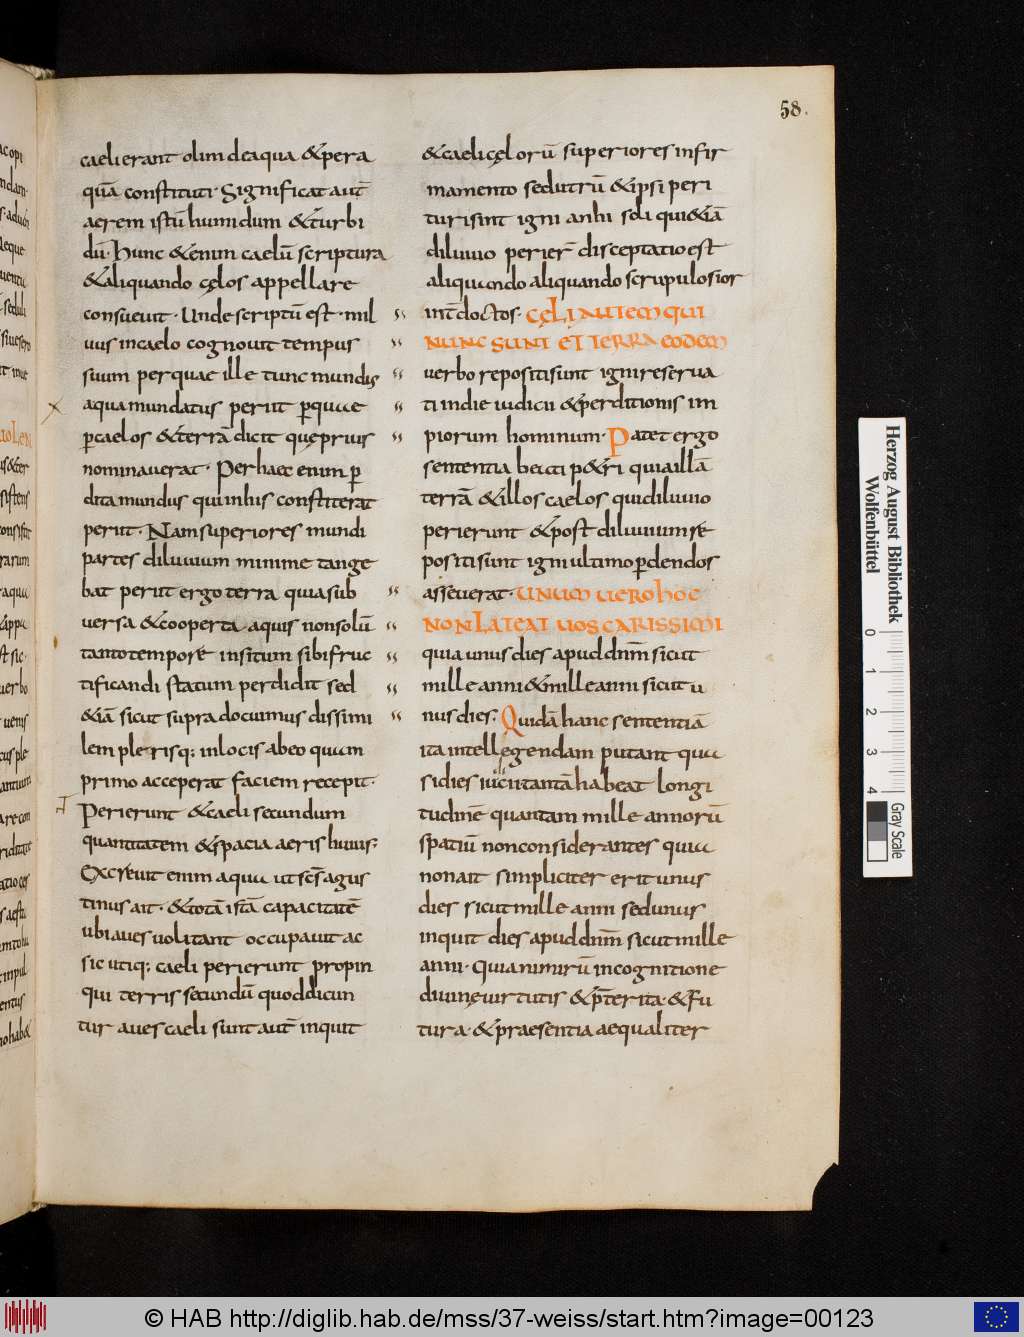 58.
caeli erant olim de aqua &per a
quā constituti· Significat aut̄
aerem istū humidum &turbi
dū· Hunc &enim caelū scriptura
&aliquando cęlos appellare
consueuit· Unde scriptū est· mil
uus in caelo cognouit tempus
suum per quae ille tunc mundus
aqua mundatus periit ꝑ quae
ꝑ caelos &terrā dicit quę prius
nominauerat· Per haec enim ꝑ
dita mundus qui in his constiterat
periit· Nam superiores mundi
partes diluuium minime tange
bat periit ergo terra quia sub
uersa &cooperta aquis non solū
tanto tempore insitum sibi fruc
tificandi statum perdidit sed
&iā sicut supra docuimus dissimi
lem plerisq; in locis ab eo quam
primo acceperat faciem recepit·
Perierunt &caeli secundum
quantitatem &spacia aeris huius;
Excreuit enim aqua ut scs̄ agus
tinus ait· &totā istā capacitatē
ubi aues uolitant occupauit ac
sic utiq; caeli perierunt propin
qui terris secundū quod dicun
tur aues caeli sunt aut̄ inquit
&caeli cęlorū superiores in fir
mamento sed utrū &ipsi peri
turi sint igni an hi soli qui &iā
diluuio perier̄ disceptatio est
aliquando aliquando scrupulosior
int̄ doctos· CĘLI AUTEM QUI
NUNC SUNT ET TERRA EODEM
uerbo repositi sunt igni reserua
ti in die iudicii &perditionis im
piorum hominum· Patet ergo
sententia beati p&ri quia illā
terrā &illos caelos qui diluuio
perierunt &post diluuium re
positi sunt igni ultimo ꝑdendos
asseuerat· UNUM UERO HOC
NON LATEAT UOS CARISSIMI
quia unus dies apud dn̄m sicut
mille anni &mille anni sicut u
nus dies; Quidā hanc sententiā
ita intellegendam putant qua
si dies iuditantā habeat longi
tudinē quantam mille annorū
spatiū non considerantes quia
non ait simpliciter erit unus
dies sicut mille anni sed unus
inquit dies apud dn̄m sicut mille
anni· Quia nimirū in cognitione
diuinę uirtutis &p̄terita· &fu
tura· &praesentia aequaliter
Herzog August Bibliothek
Wolfenbüttel
0 1 2 3 4
Gray Scale
© HAB http://diglib.hab.de/mss/37-weiss/start.htm?image=00123